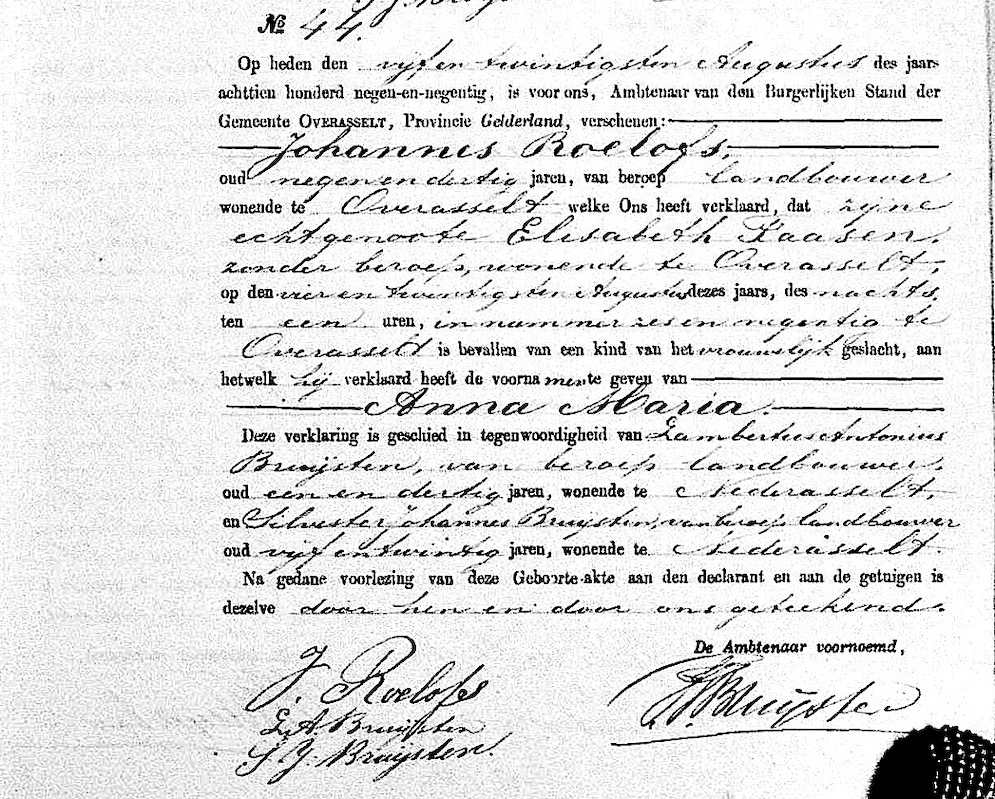 No 44.
Op heden den vijf en twintigsten Augustus des jaars
achttien honderd negen-en-negentig, is voor ons, Ambtenaar van den Burgerlijken Stand der
Gemeente OVERASSELT, Provincie Gelderland, verschenen:
Johannes Roelofs,
oud negen en dertig jaren, van beroep landbouwer
wonende te Overasselt welke Ons heeft verklaard, dat zijne
echtgenoote Elisabeth Kaasen,
zonder beroep, wonende te Overasselt,
op den vier en twintigsten Augustus dezes jaars, des nachts
ten een uren, in nummer zes en negentig te
Overasselt is bevallen van een kind van het vrouwelijk geslacht, aan
hetwelk hij verklaard heeft de voornamen te geven van
Anna Maria.
Deze verklaring is geschied in tegenwoordigheid van Lambertus Antonius
Bruijsten, van beroep landbouwer,
oud een en dertig jaren, wonende te Nederasselt,
en Silvester Johannes Bruijsten, van beroep landbouwer
oud vijf en twintig jaren, wonende te Nederasselt.
Na gedane voorlezing van deze Geboorte-akte aan den declarant en aan de getuigen is
dezelve door hen en door ons geteekend.
De Ambtenaar voornoemd,
J. Roelofs
L. A. Bruijsten
S. J. Bruijsten.
Bruijsten